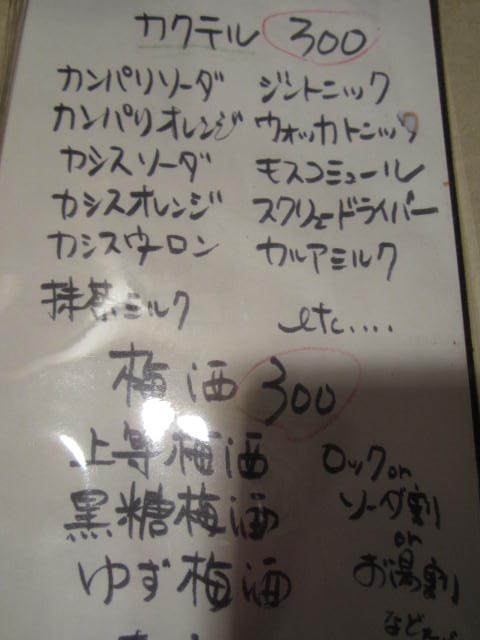 カクテル 300
カンパリソーダ ジントニック
カンパリオレンジ ウォッカトニック
カシスソーダ モスコミュール
カシスオレンジ スクリュードライバー
カシスウーロン カルアミルク
抹茶ミルク etc....
梅酒 300
上等梅酒 ロック or
黒糖梅酒 ソーダ割
or
ゆず梅酒 お湯割
など